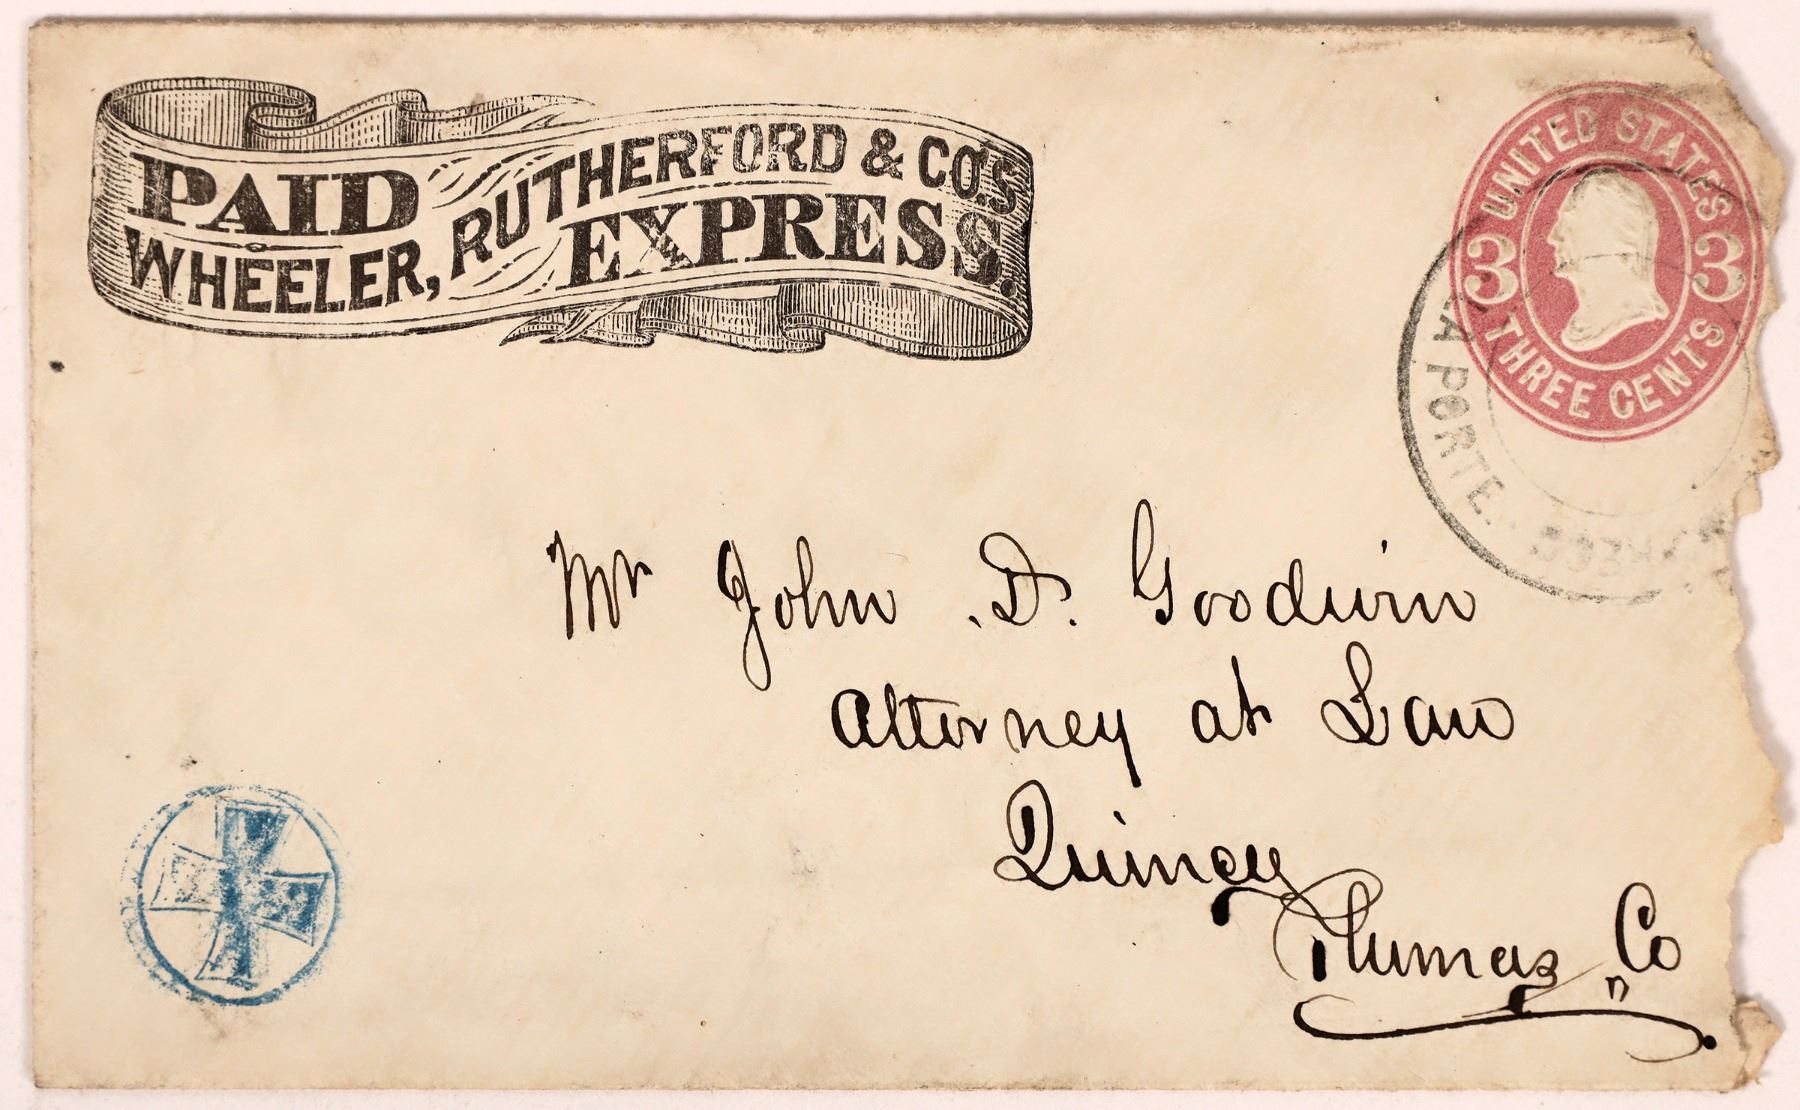 PAID
WHEELER, RUTHERFORD & CO'S
EXPRESS.
UNITED STATES
3 3
THREE CENTS
LA PORTE.
Mr John D. Goodwin
Attorney at Law
Quincy
Plumas Co